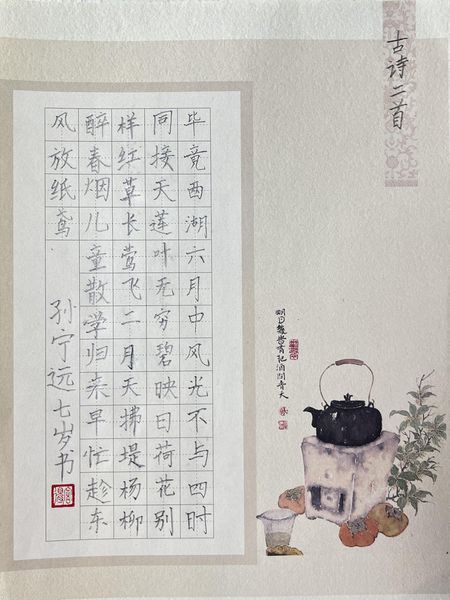 古诗二首
毕竟西湖六月中风光不与四时
同接天莲叶无穷碧映日荷花别
样红草长莺飞二月天拂堤杨柳
醉春烟儿童散学归来早忙趁东
风放纸鸢
孙宁远七岁书
明月幾旹有把酒問青天